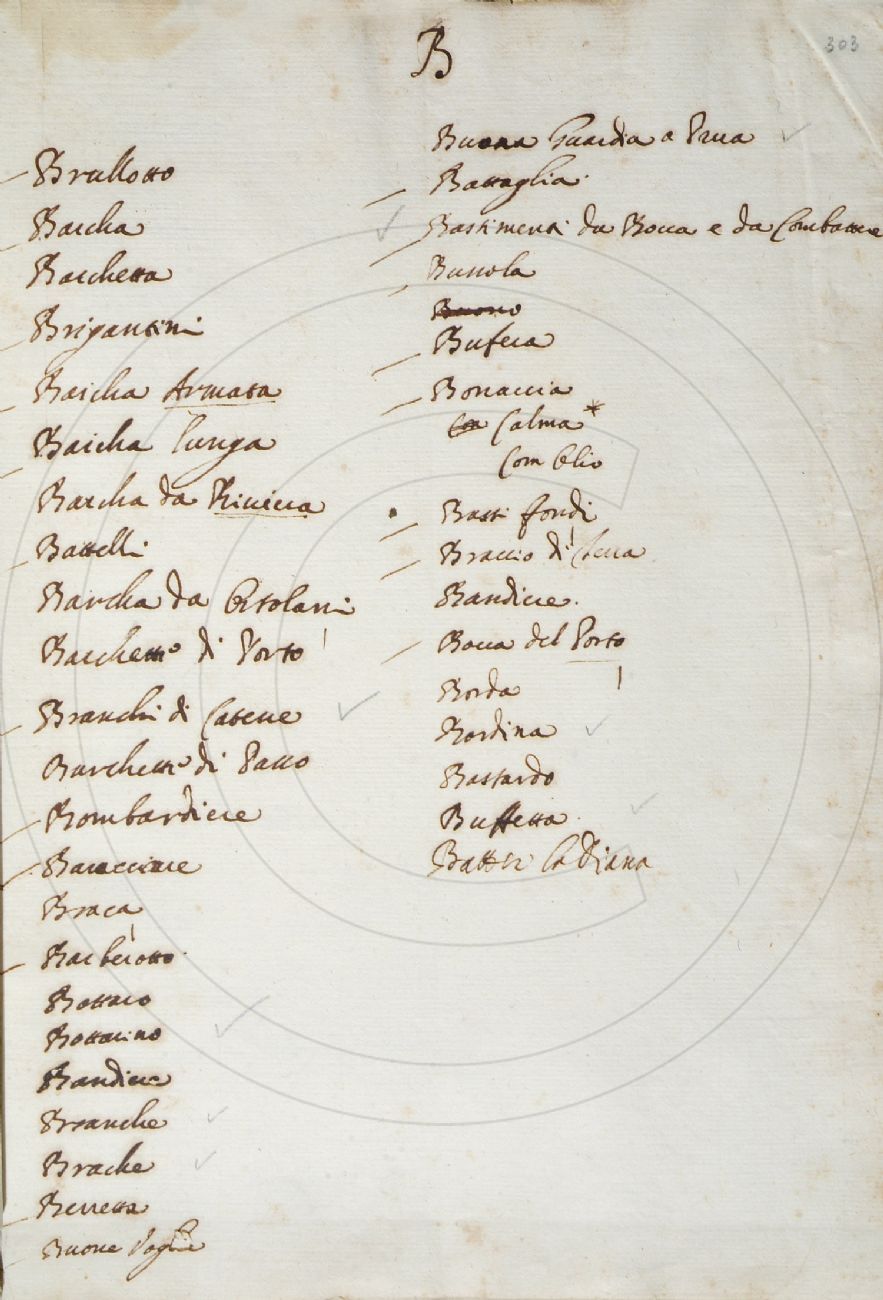 B
303
Brullotto
Barcha
Barchetta
Brigantini
Barcha Armata
Barcha lunga
Barcha da Riviera
Battelli
Barcha da
Barchetto di Porto
Branchi di Catene
Burchetto di
Bombardiere
Braca
Barberotto
Bottaro
Bottarino
Bandiera
Branche
Brache
Berretta
Buone Voglie
Buona Guardia a Prua
Battaglia
Bastimenti da Bocca e da Combattere
Bussola
Buono
Bufera
Bonaccia
Calma*
Com Olio
Bassi fondi
Braccio di
Bandiere.
Bocca del Porto
Borda
Bordina
Bastardo
Buffetta
Batter la Diana